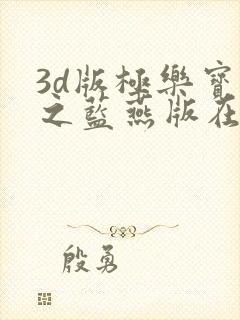 3d版極樂寶
之藍燕版在
殷勇